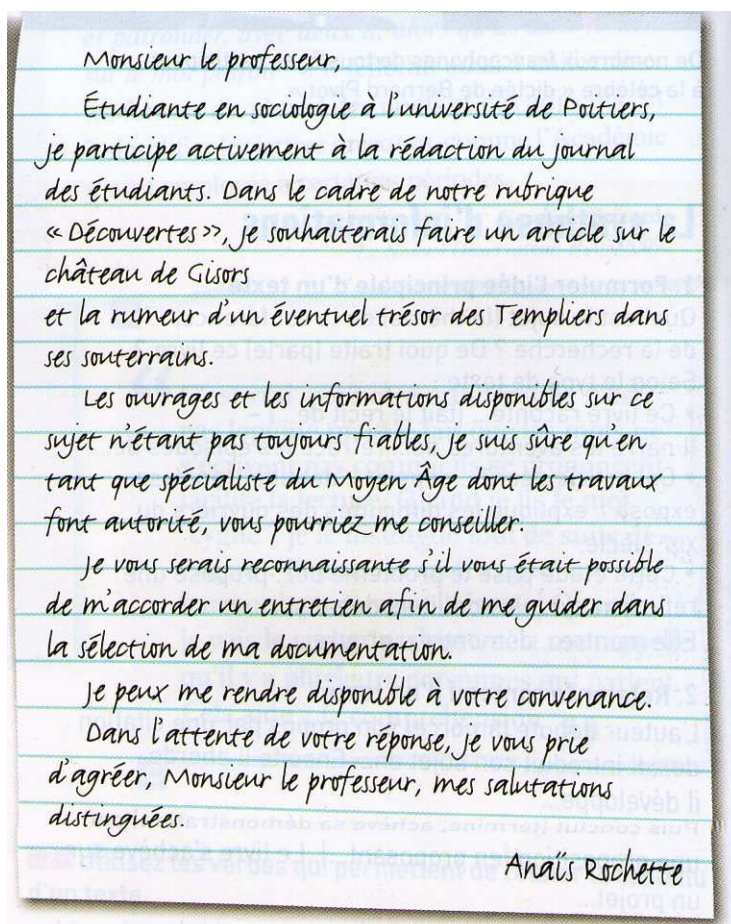 Monsieur le professeur,
Étudiante en sociologie à l'université de Poitiers,
je participe activement à la rédaction du journal
des étudiants. Dans le cadre de notre rubrique
« Découvertes », je souhaiterais faire un article sur le
château de Gisors
et la rumeur d'un éventuel trésor des Templiers dans
ses souterrains.
Les ouvrages et les informations disponibles sur ce
sujet n'étant pas toujours fiables, je suis sûre qu'en
tant que spécialiste du Moyen Âge dont les travaux
font autorité, vous pourriez me conseiller.
Je vous serais reconnaissante s'il vous était possible
de m'accorder un entretien afin de me guider dans
la sélection de ma documentation.
Je peux me rendre disponible à votre convenance.
Dans l'attente de votre réponse, je vous prie
d'agréer, Monsieur le professeur, mes salutations
distinguées.
Anaïs Rochette